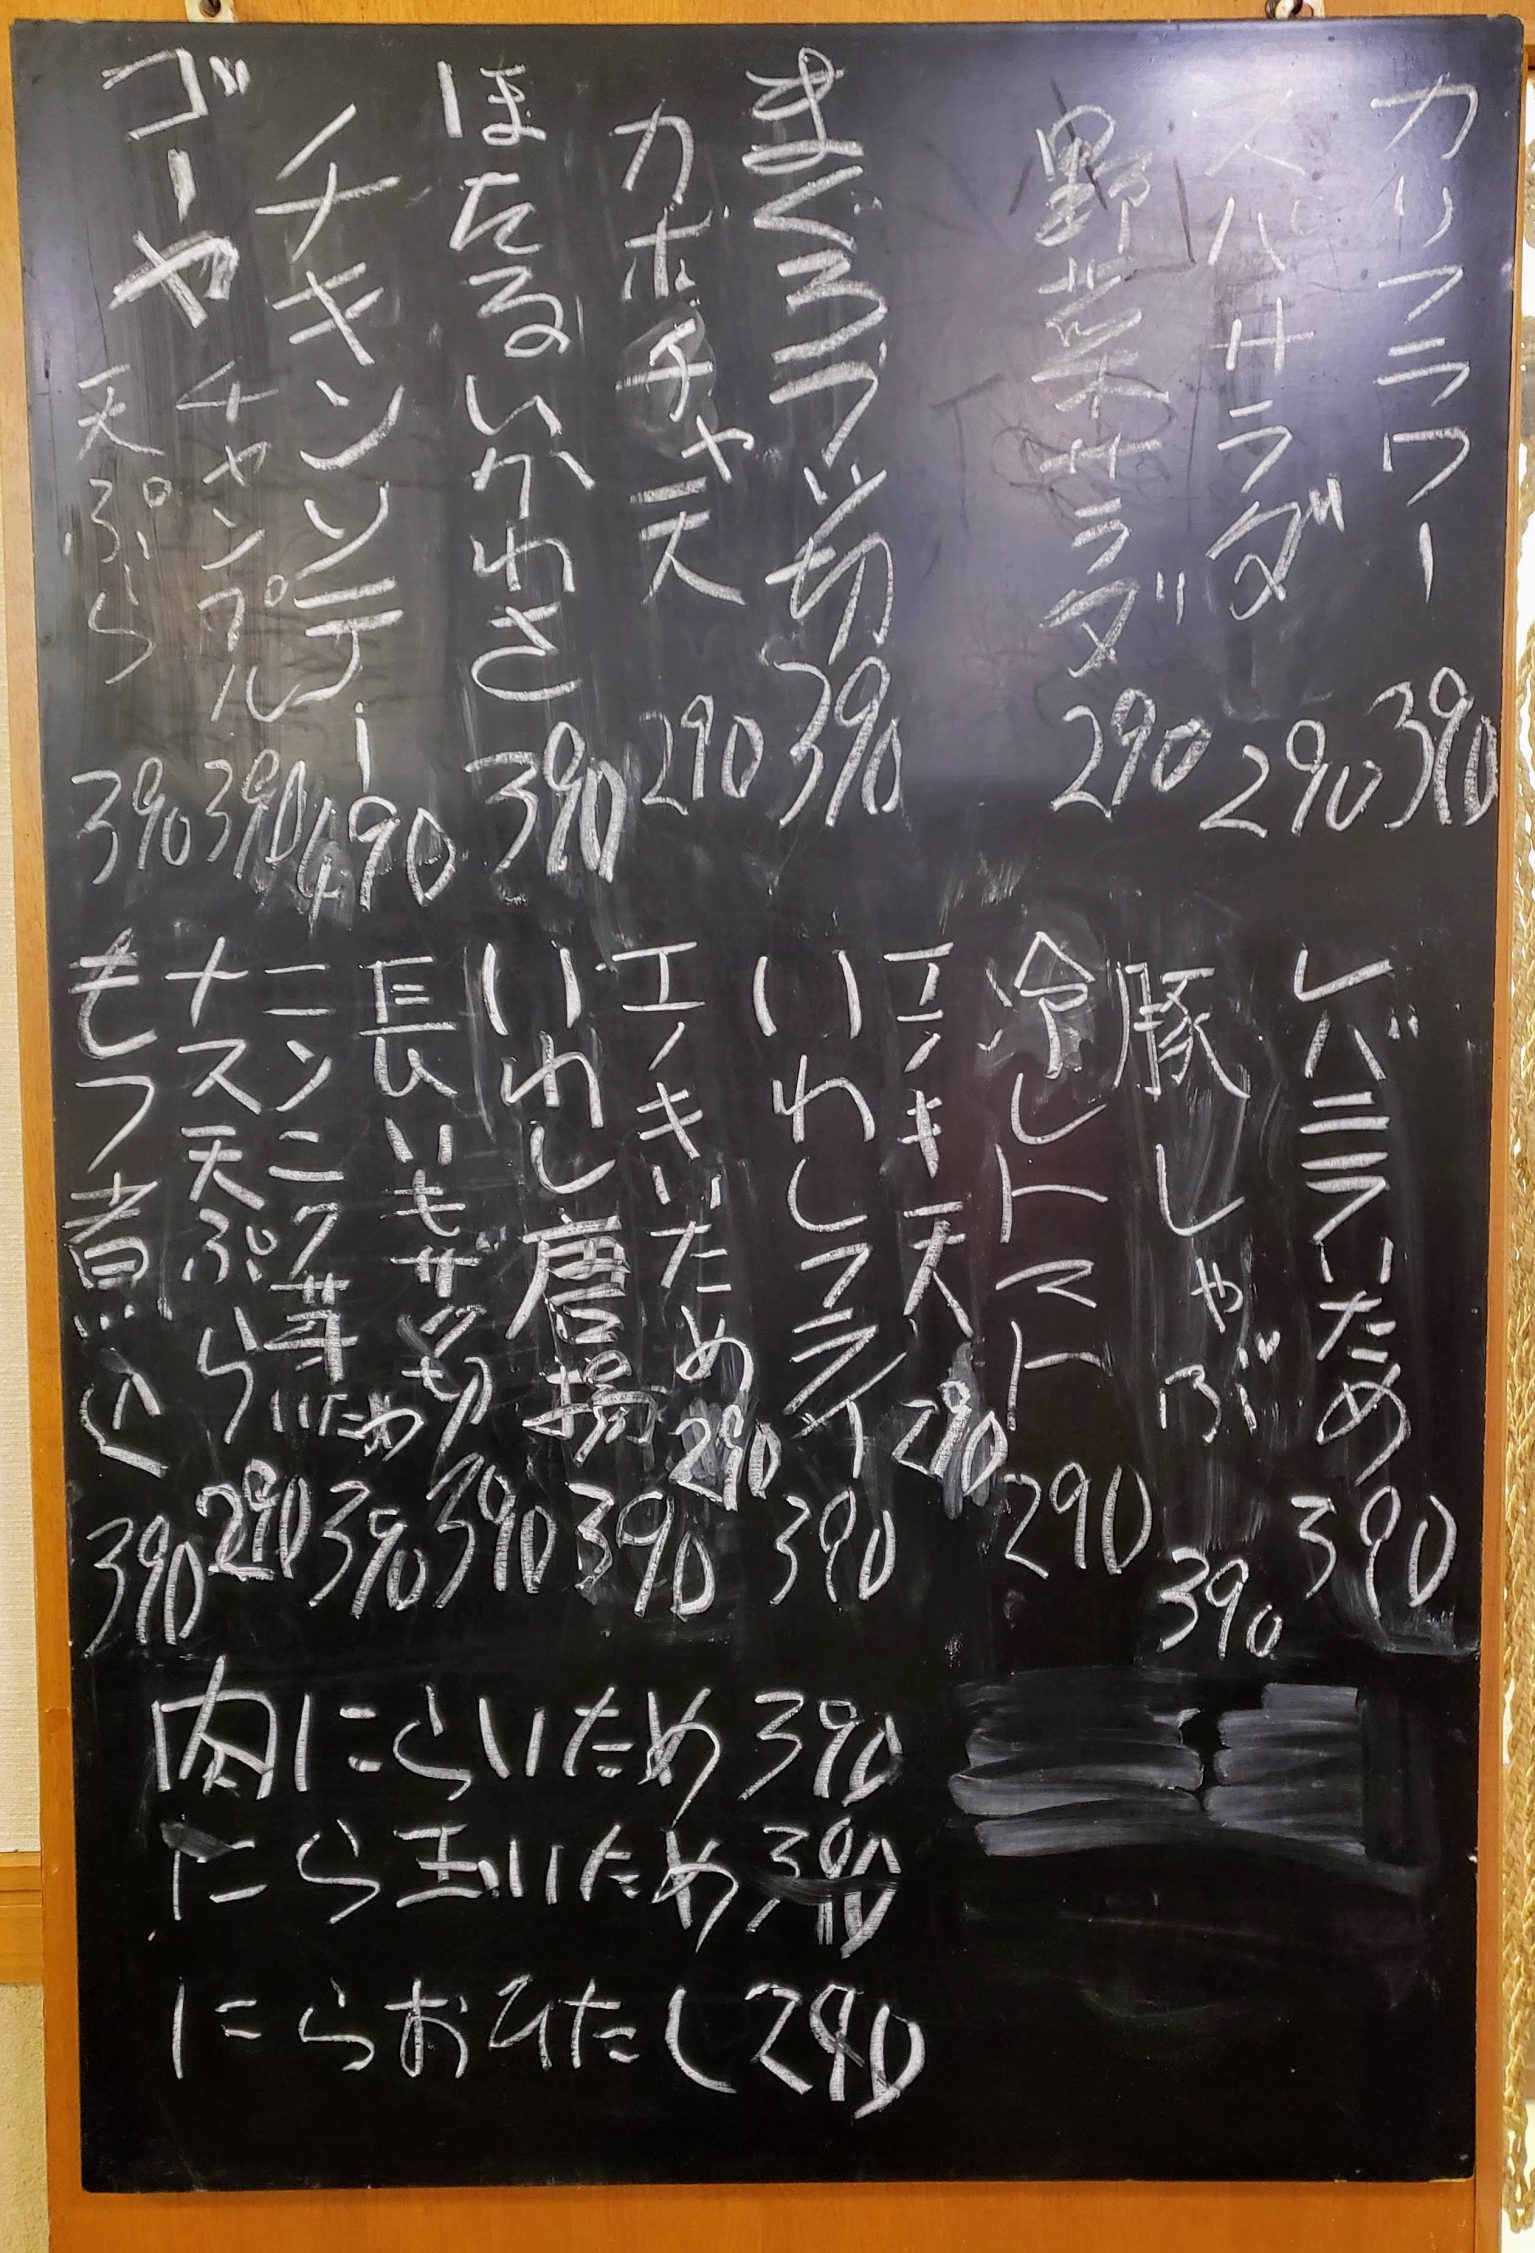 カリフラワー 390
スパサラダ 290
野菜サラダ 290
まぐろブツ切 390
カボチャ天 290
ほたるいかわさ 390
チキンソテー 490
ゴーヤ
チャンプル 390
天ぷら 390
レバニラいため 390
豚しゃぶ 390
冷しトマト 290
エノキ天 290
いわしフライ 390
エノキいため 290
いわし唐揚 390
長いもザク切 390
ニンニク芽いため 390
ナス天ぷら 290
もつ煮込 390
肉にらいため 390
にら玉いため 390
にらおひたし 290